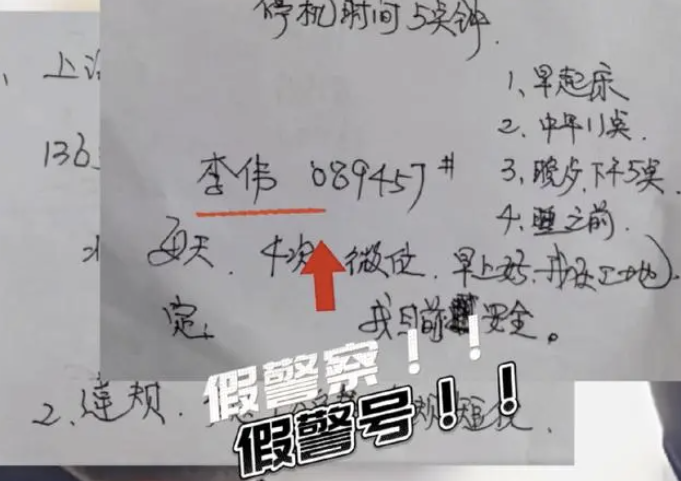 停机时间5点钟
1、早起床
2、中午11点.
3、晚点,下午5点
4、睡之前.
李伟 089457#
每天. 4次 微信. 早上好.我在工地)
定. 我目前 安全。
、上
136
假警察！！
2、违规. 短
假警号！！